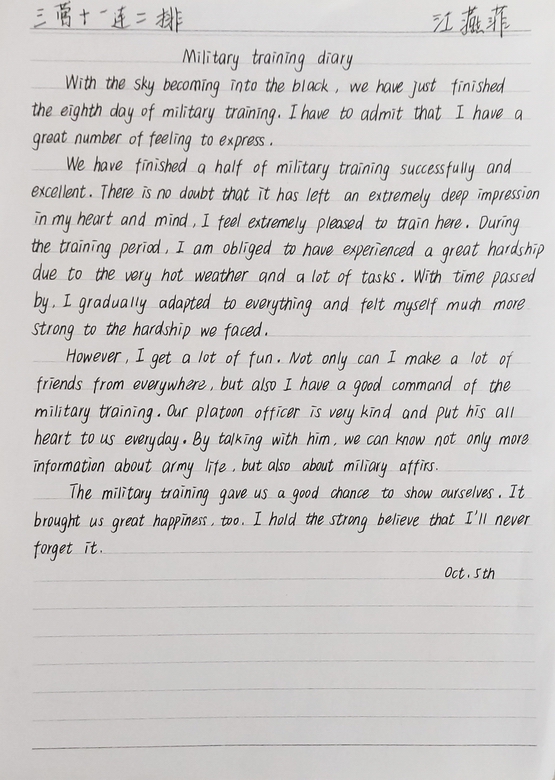 三营十一连二排 江燕菲
Military training diary
With the sky becoming into the black, we have just finished
the eighth day of military training. I have to admit that I have a
great number of feeling to express.
We have finished a half of military training successfully and
excellent. There is no doubt that it has left an extremely deep impression
in my heart and mind, I feel extremely pleased to train here. During
the training period, I am obliged to have experienced a great hardship
due to the very hot weather and a lot of tasks. With time passed
by, I gradually adapted to everything and felt myself much more
strong to the hardship we faced.
However, I get a lot of fun. Not only can I make a lot of
friends from everywhere, but also I have a good command of the
military training. Our platoon officer is very kind and put his all
heart to us everyday. By talking with him, we can know not only more
information about army life, but also about miliary affirs.
The military training gave us a good chance to show ourselves. It
brought us great happiness, too. I hold the strong believe that I'll never
forget it.
Oct. 5th